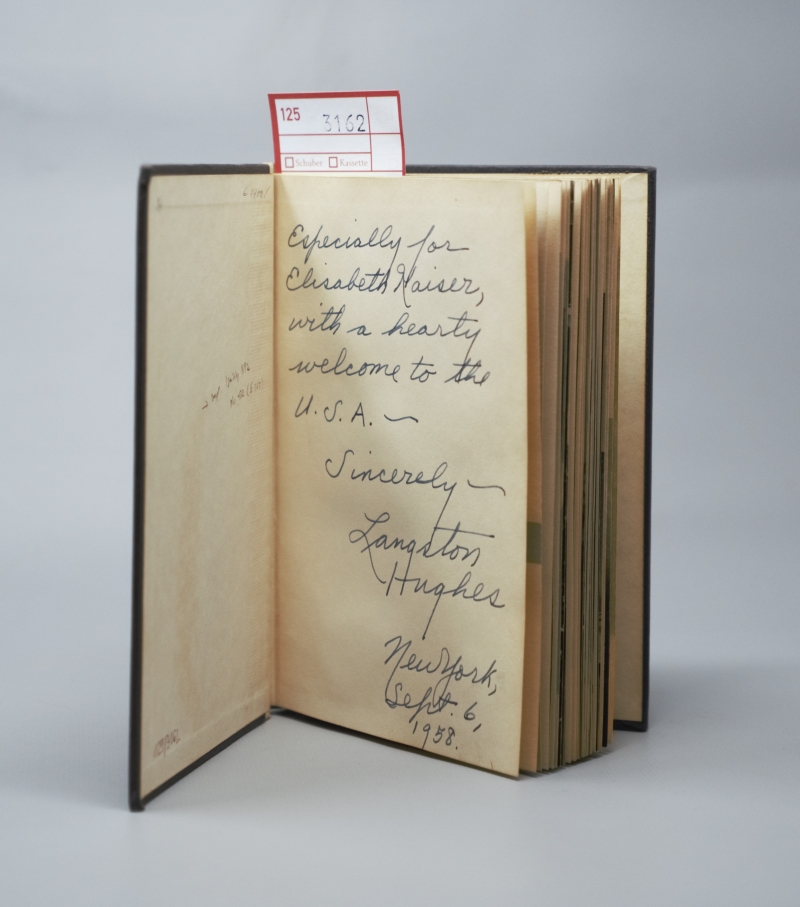 125 3162
Schuber Kassette
Especially for
Elisabeth Kaiser,
with a hearty
welcome to the
U.S.A. —
Sincerely —
Langston
Hughes
New York,
Sept. 6,
1958.